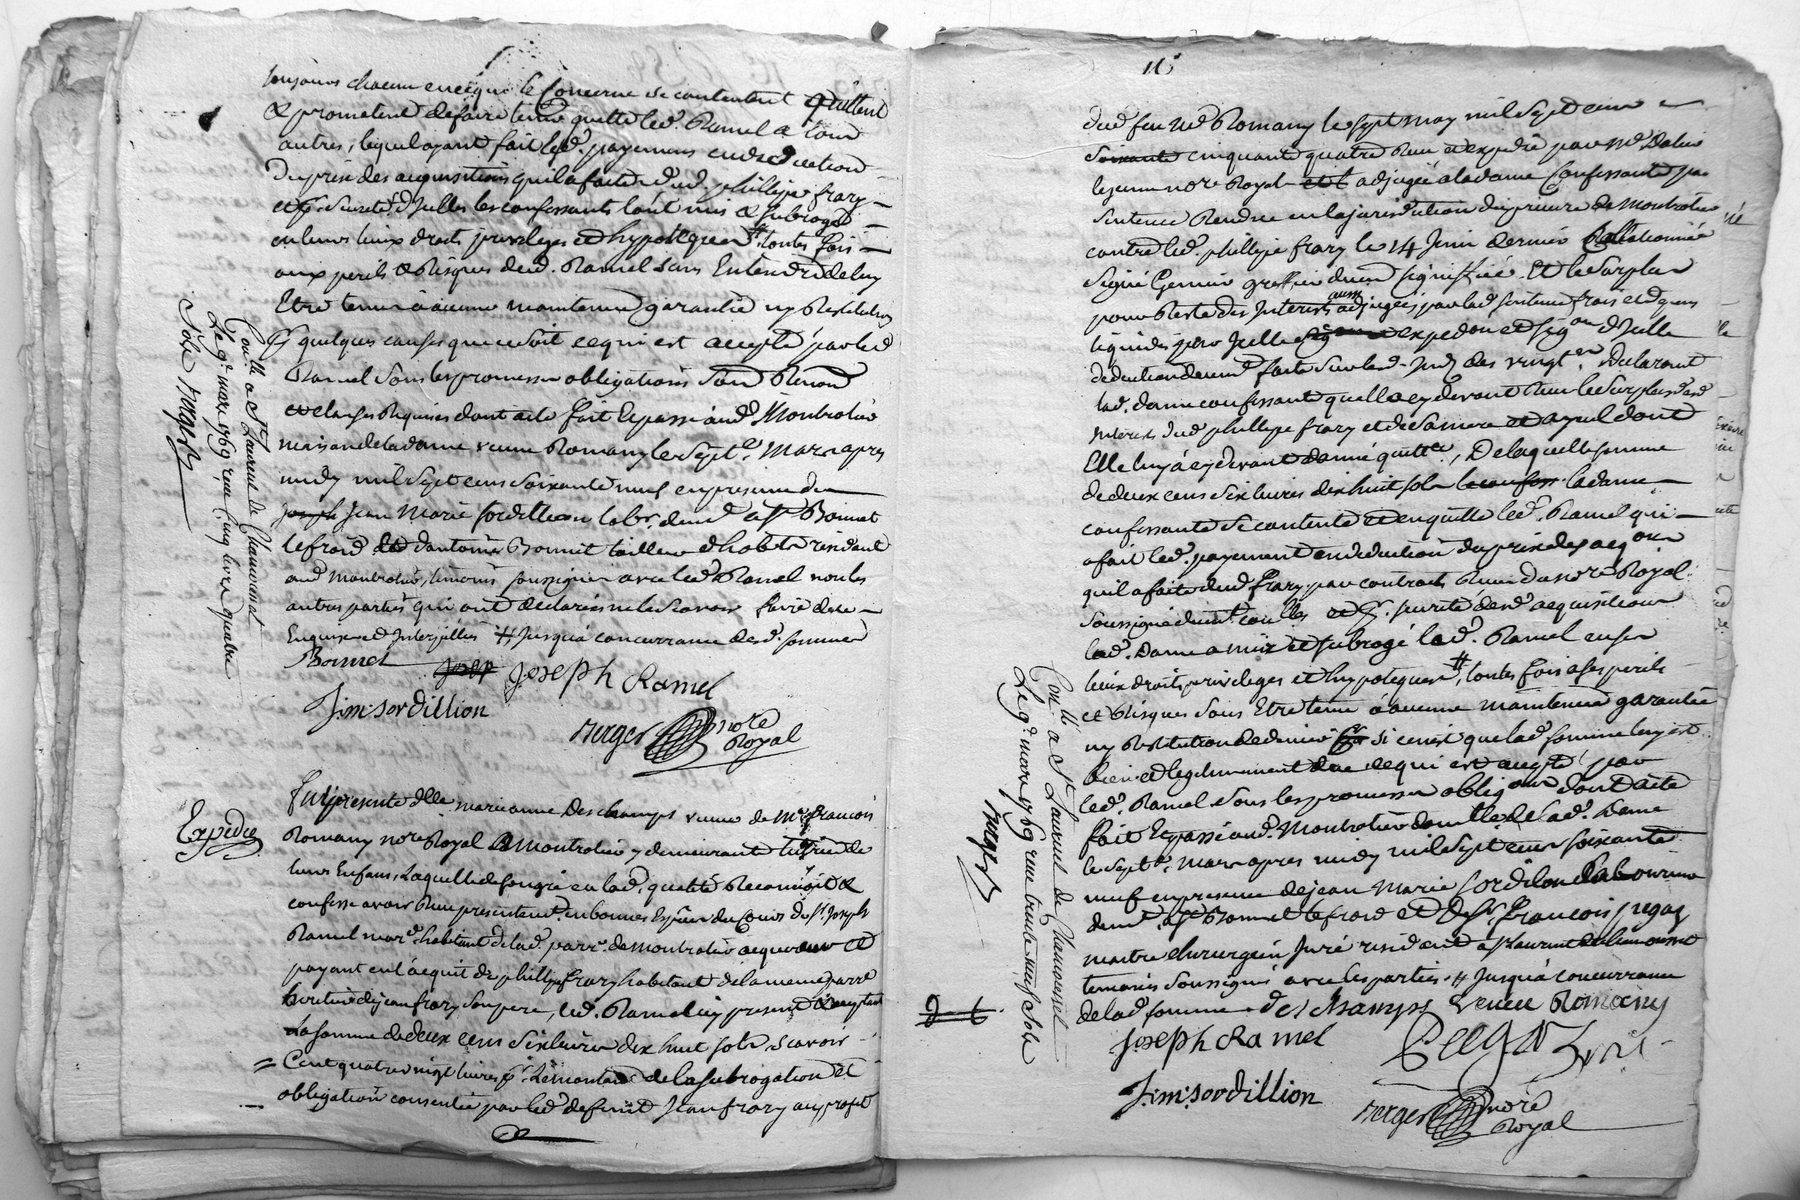 toujours chacun en ce qui le Concerne se contentent quittent
& prometent defaire tenir quitte led. Ramel a tous
autres, lequel ayant fait led. payemens en deduction
Du prix des acquisitions qu'il a faites dud. phillipe frary
et pr. Sureté d'Icelles les confessants l'ont mis & subrogé
en leurs lieux droits privileges et hypoteques #, toutes fois
aux perils & Risques dud. Ramel sans Entendre de luy
Etre tenus à aucune maintenue garantie ny Restitution
pr. quelques causes que ce soit ce qui est accepté par led.
Ramel Sous les promesses obligations Soum. Renon.
et clauses Requises dont acte fait Et passé aud. Montrotier
maison de la dame veuve Romany le sept. Mars apres
midy mil Sept cens Soixante neuf en presence de
Jean Marie Sordillion labr. dud. Bonnet
le froid et d'antoine Bonnet tailleur d'habits residant
aud. Montrotier, temoins soussignés avec led. Ramel non les
autres parties qui ont declarés ne le Scavoir faire de ce
Enquises et Interpellées # Jusqu'à concurrance desd. sommes
Bonnet Joseph Ramel
J. m. Sordillion
Berger nore
Royal
Conllé a St. Laurent de Chamousset
Le 9. mars 1769 reçu Cinq livres quatre
Sols Berger
Expediée
Fut presente dlle. marianne Deschamps veuve de Me. francois
Romany nore Royal a Montrotier y demeurante tutrice de
leurs Enfans, Laquelle de son gré en lad. qualité Reconnoit &
confesse avoir Reçu presentement en bonnes Espèces du Cours de Sr. Joseph
Ramel mard. habitant de lad. parr. de montrotier acquereur et
payant en l'acquit de phillipe frary habitant de la meme parre
heritier de jean frary son pere, led. Ramel icy present & acceptant
La somme de deux cens Six livres dix huit sols scavoir
Cent quatre vingt livres pr. Le montant de la subrogation et
obligation consentie par led. defunt Jean frary au profit
11
dud. feu Me. Romany le sept may mil Sept cens
cinquante quatre Reçu et expedié par Me. Dalin
lejeune nore Royal adjugée a la dame Confessante par
Sentence Rendue en la jurisdiction du prieuré de Montrotier
contre led. phillipe frary le 14 Juin dernier Collationnée
Signé Garnier greffier duement signiffiée. Et le Surplus
pour Reste des Interests aussi adjugés par lad. sentence frais et depens
liquidés par Icelle expedon et sigon d'Icelle
deduction duement faite Sur lesd. Int. des vingt. Declarant
lad. dame confessante quelle a cy devant Reçu le Surplus desd.
Interests dud. phillipe frary et de Sa mere et ayeul dont
Elle luy a cy devant donné quittce, De laquelle somme
de deux cens Six livres dix huit sols la dame
confessante Se contente et en quitte led. Ramel qui
a fait led. payement en deduction du prix des acqons
qu'il a faites dud. frary par contracts Reçus du nore Royal
Soussigné duemt. conllés et pr. Sureté desd. acquisitions
lad. Dame a mis et subrogé led. Ramel en ses
lieux droits privileges et hypoteques #, toutes fois a ses perils
et Risques Sans Etre tenue à aucune maintenue garantie
ny Restitution de deniers Si ce n'est que lad. somme luy est
bien et legitimement due ce qui est accepté par
led. Ramel Sous les promesses obligons dont acte
fait Et passé aud. Montrotier domlle. de lad. Dame
le Sept. Mars apres midy mil Sept cens Soixante
neuf en presence de jean Marie Sordilion Laboureur
dud. Bonnet le froid et de Sr. francois pegaz
maitre chirurgien Juré residant a St. Laurent de Chamousset
temoins Soussignés avec les parties # Jusqu'à concurrance
de lad. somme. deschamps veuve Romany
Joseph Ramel
J. m. Sordillion
Berger nore
Royal
Conllé a St. Laurent de Chamousset
Le 9. mars 1769 reçu trente neuf Sols
Berger